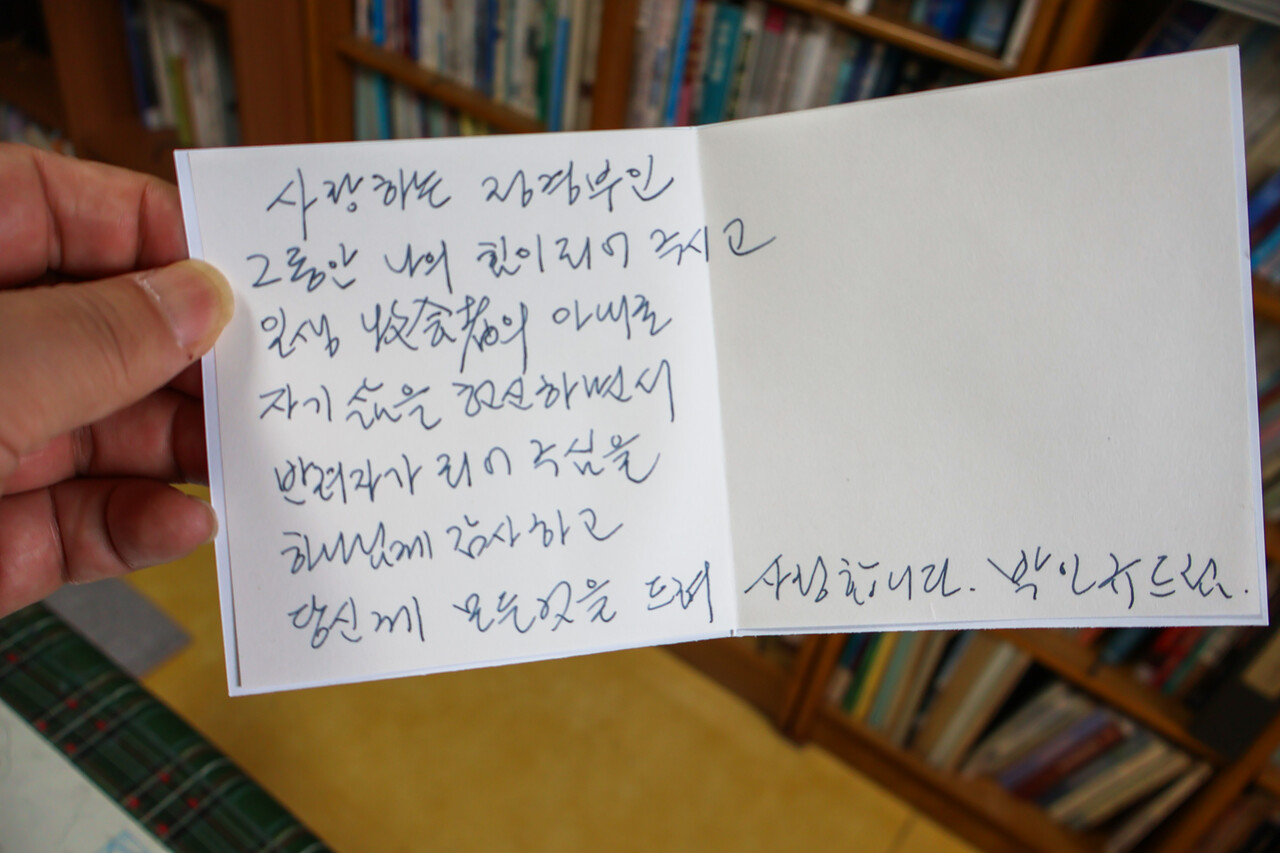 사랑하는 정경부인
그동안 나의 힘이 되어 주시고
일생 牧會者의 아내로
자기 삶을 헌신하면서
반려자가 되어 주심을
하나님께 감사하고
당신께 모든것을 드려 사랑합니다. 박인주드림.